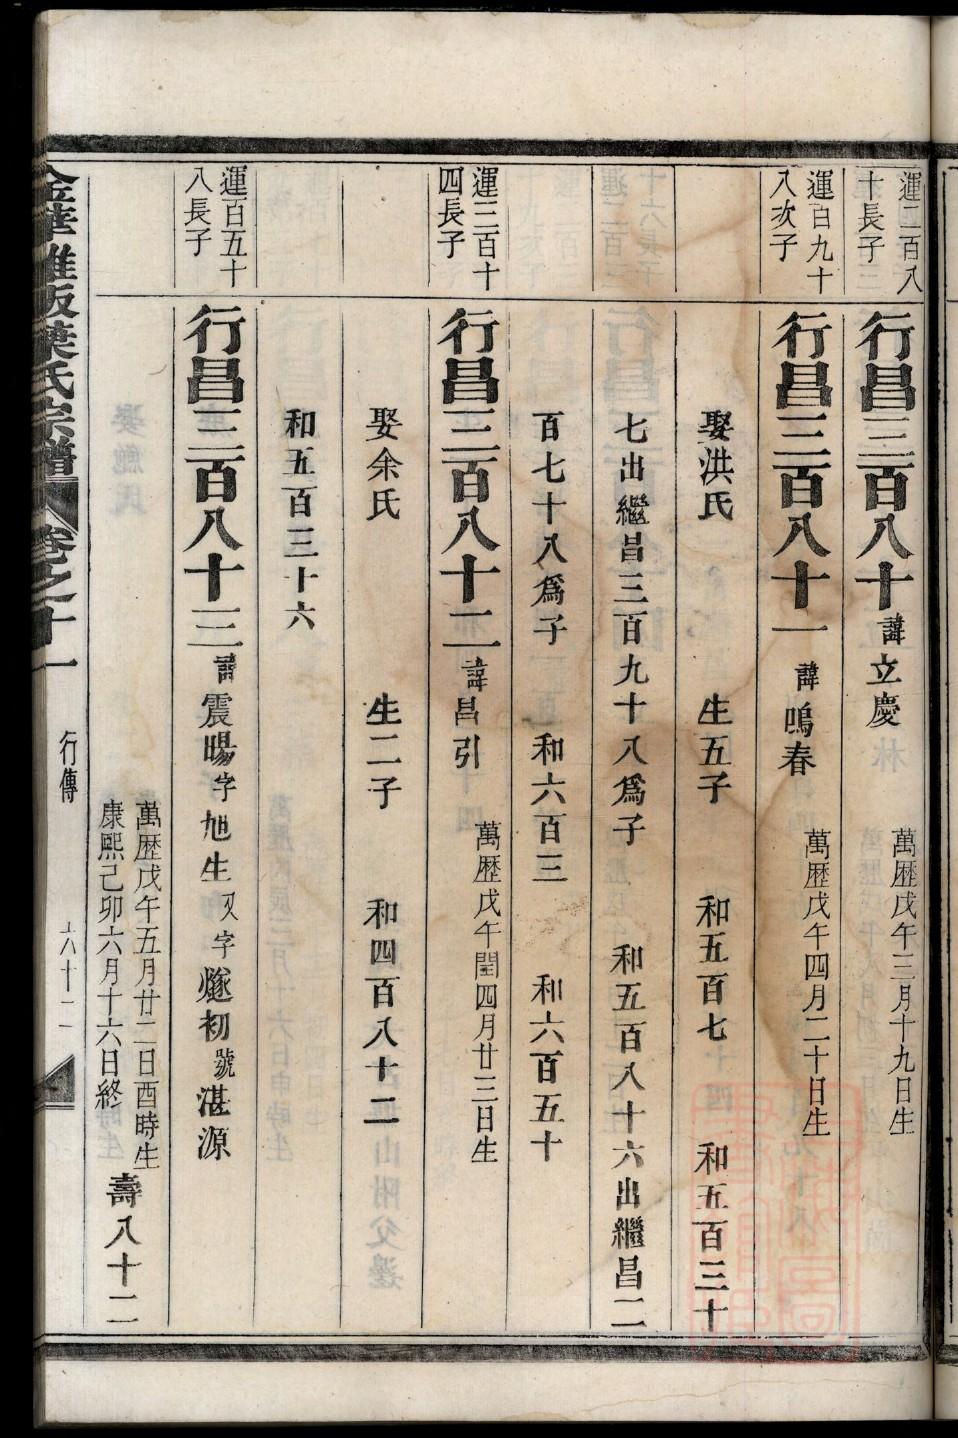 運二百八
十長子
行昌三百八十 諱立慶 萬歷戊午三月十九日生
運百九十
八次子
行昌三百八十一 諱鳴春 萬歷戊午四月二十日生
娶洪氏 生五子 和五百七十四 和五百三十
七出繼昌三百九十八爲子 和五百八十六出繼昌二
百七十八爲子 和六百三 和六百五十
運三百十
四長子
行昌三百八十二 諱昌引 萬歷戊午閏四月廿三日生
娶余氏 生二子 和四百八十二
和五百三十六
運百五十
八長子
行昌三百八十三 諱震暘字旭生又字燧初號湛源
萬歷戊午五月廿二日酉時生
康熙己卯六月十六日終 壽八十二
金華雅畈葉氏宗譜 卷之十一 行傳 六十二